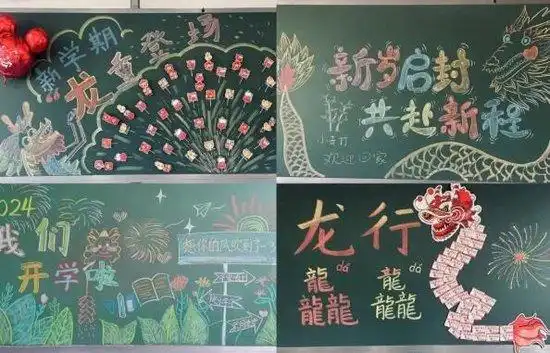 新学期
“龙”重登场
新岁启封
共赴新程
欢迎回家
2024
我们
开学啦
想你的风吹到了
龙行
dá dá
龘龘